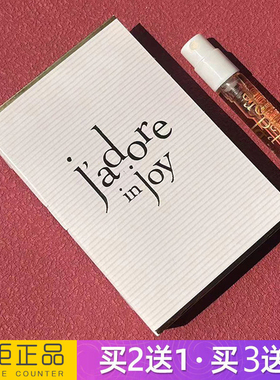 j'adore
in joy
柜正品
E COUNTER
买2送1·买3送